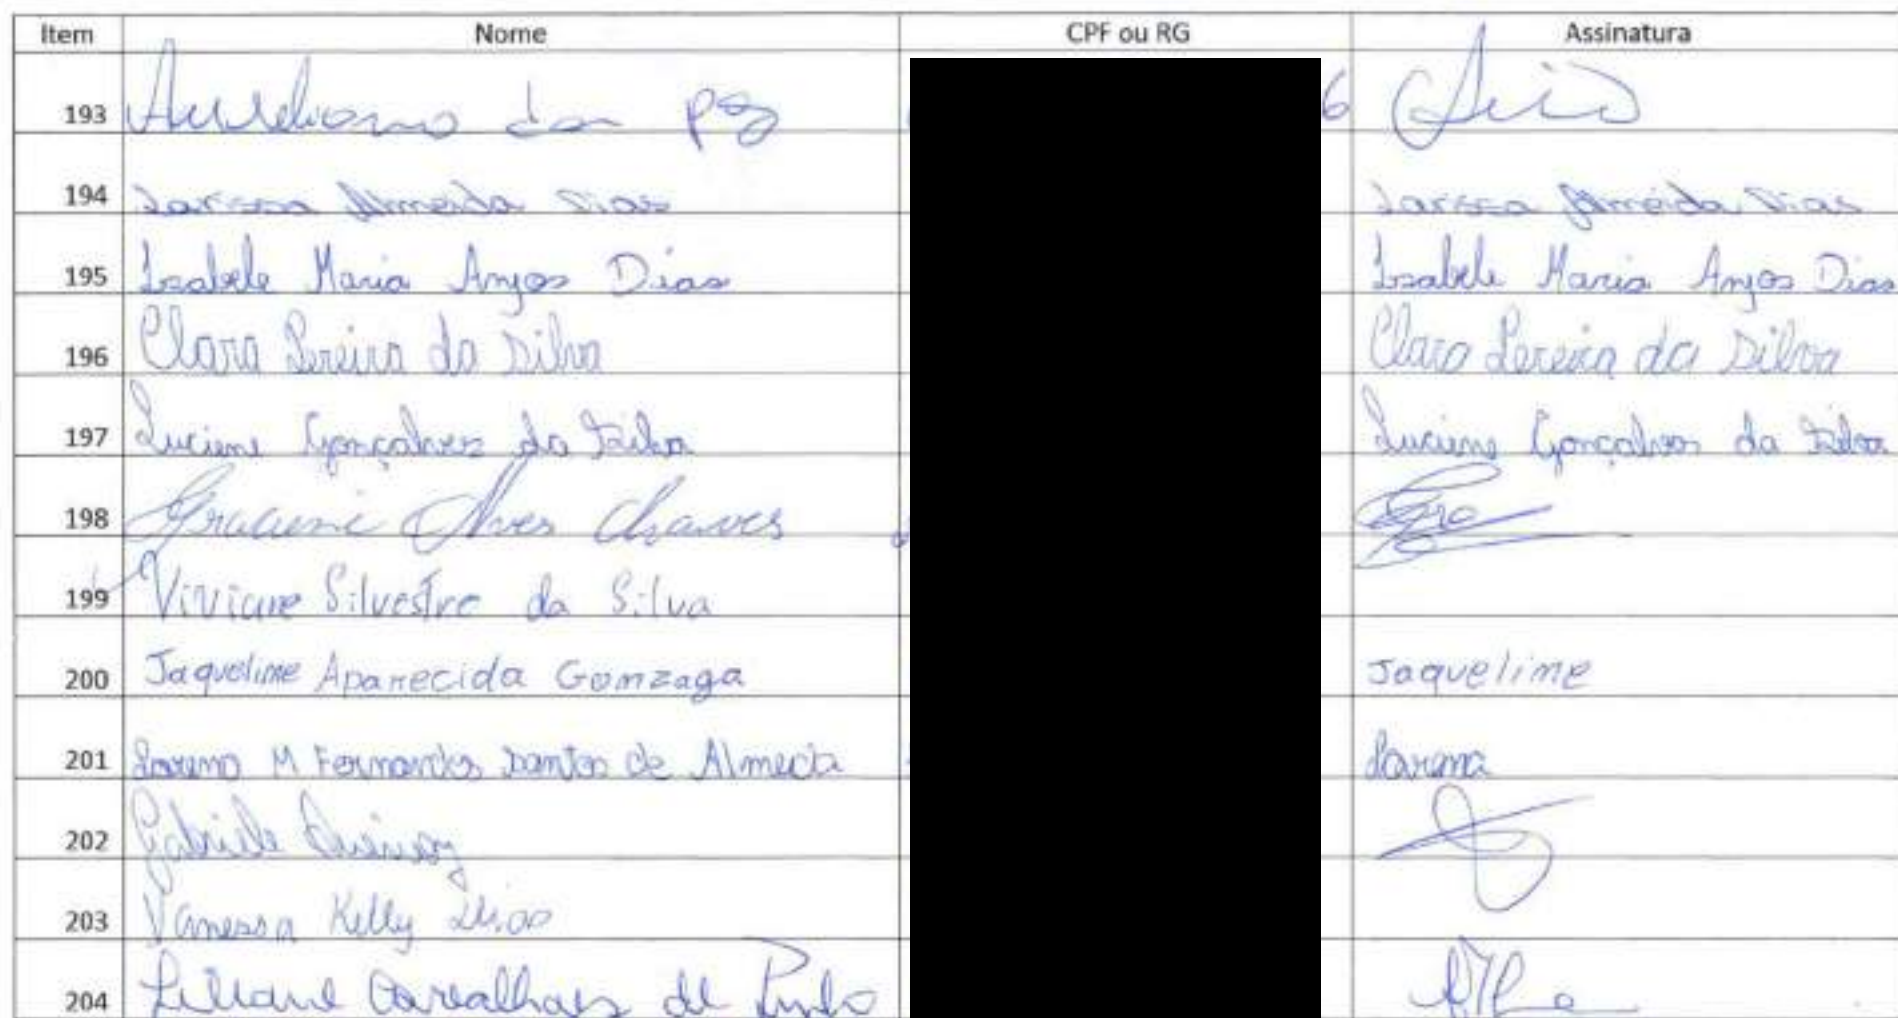 Item Nome CPF ou RG Assinatura
193 Aureliano 6
194 Larissa Almeida Dias Larissa Almeida Dias
195 Isabele Maria Anjos Dias Isabele Maria Anjos Dias
196 Clara Pereira da Silva Clara Pereira da Silva
197 Luciene Gonçalves da Silva Luciene Gonçalves da Silva
198 Graciene Alves Chaves
199 Viviane Silvestre da Silva
200 Jaqueline Aparecida Gonzaga Jaqueline
201 Lorena M Fernandes Santos de Almeida Lorena
202 Gabriele
203 Vanessa Kelly Dias
204 Liliane Carvalhaes de Pinho